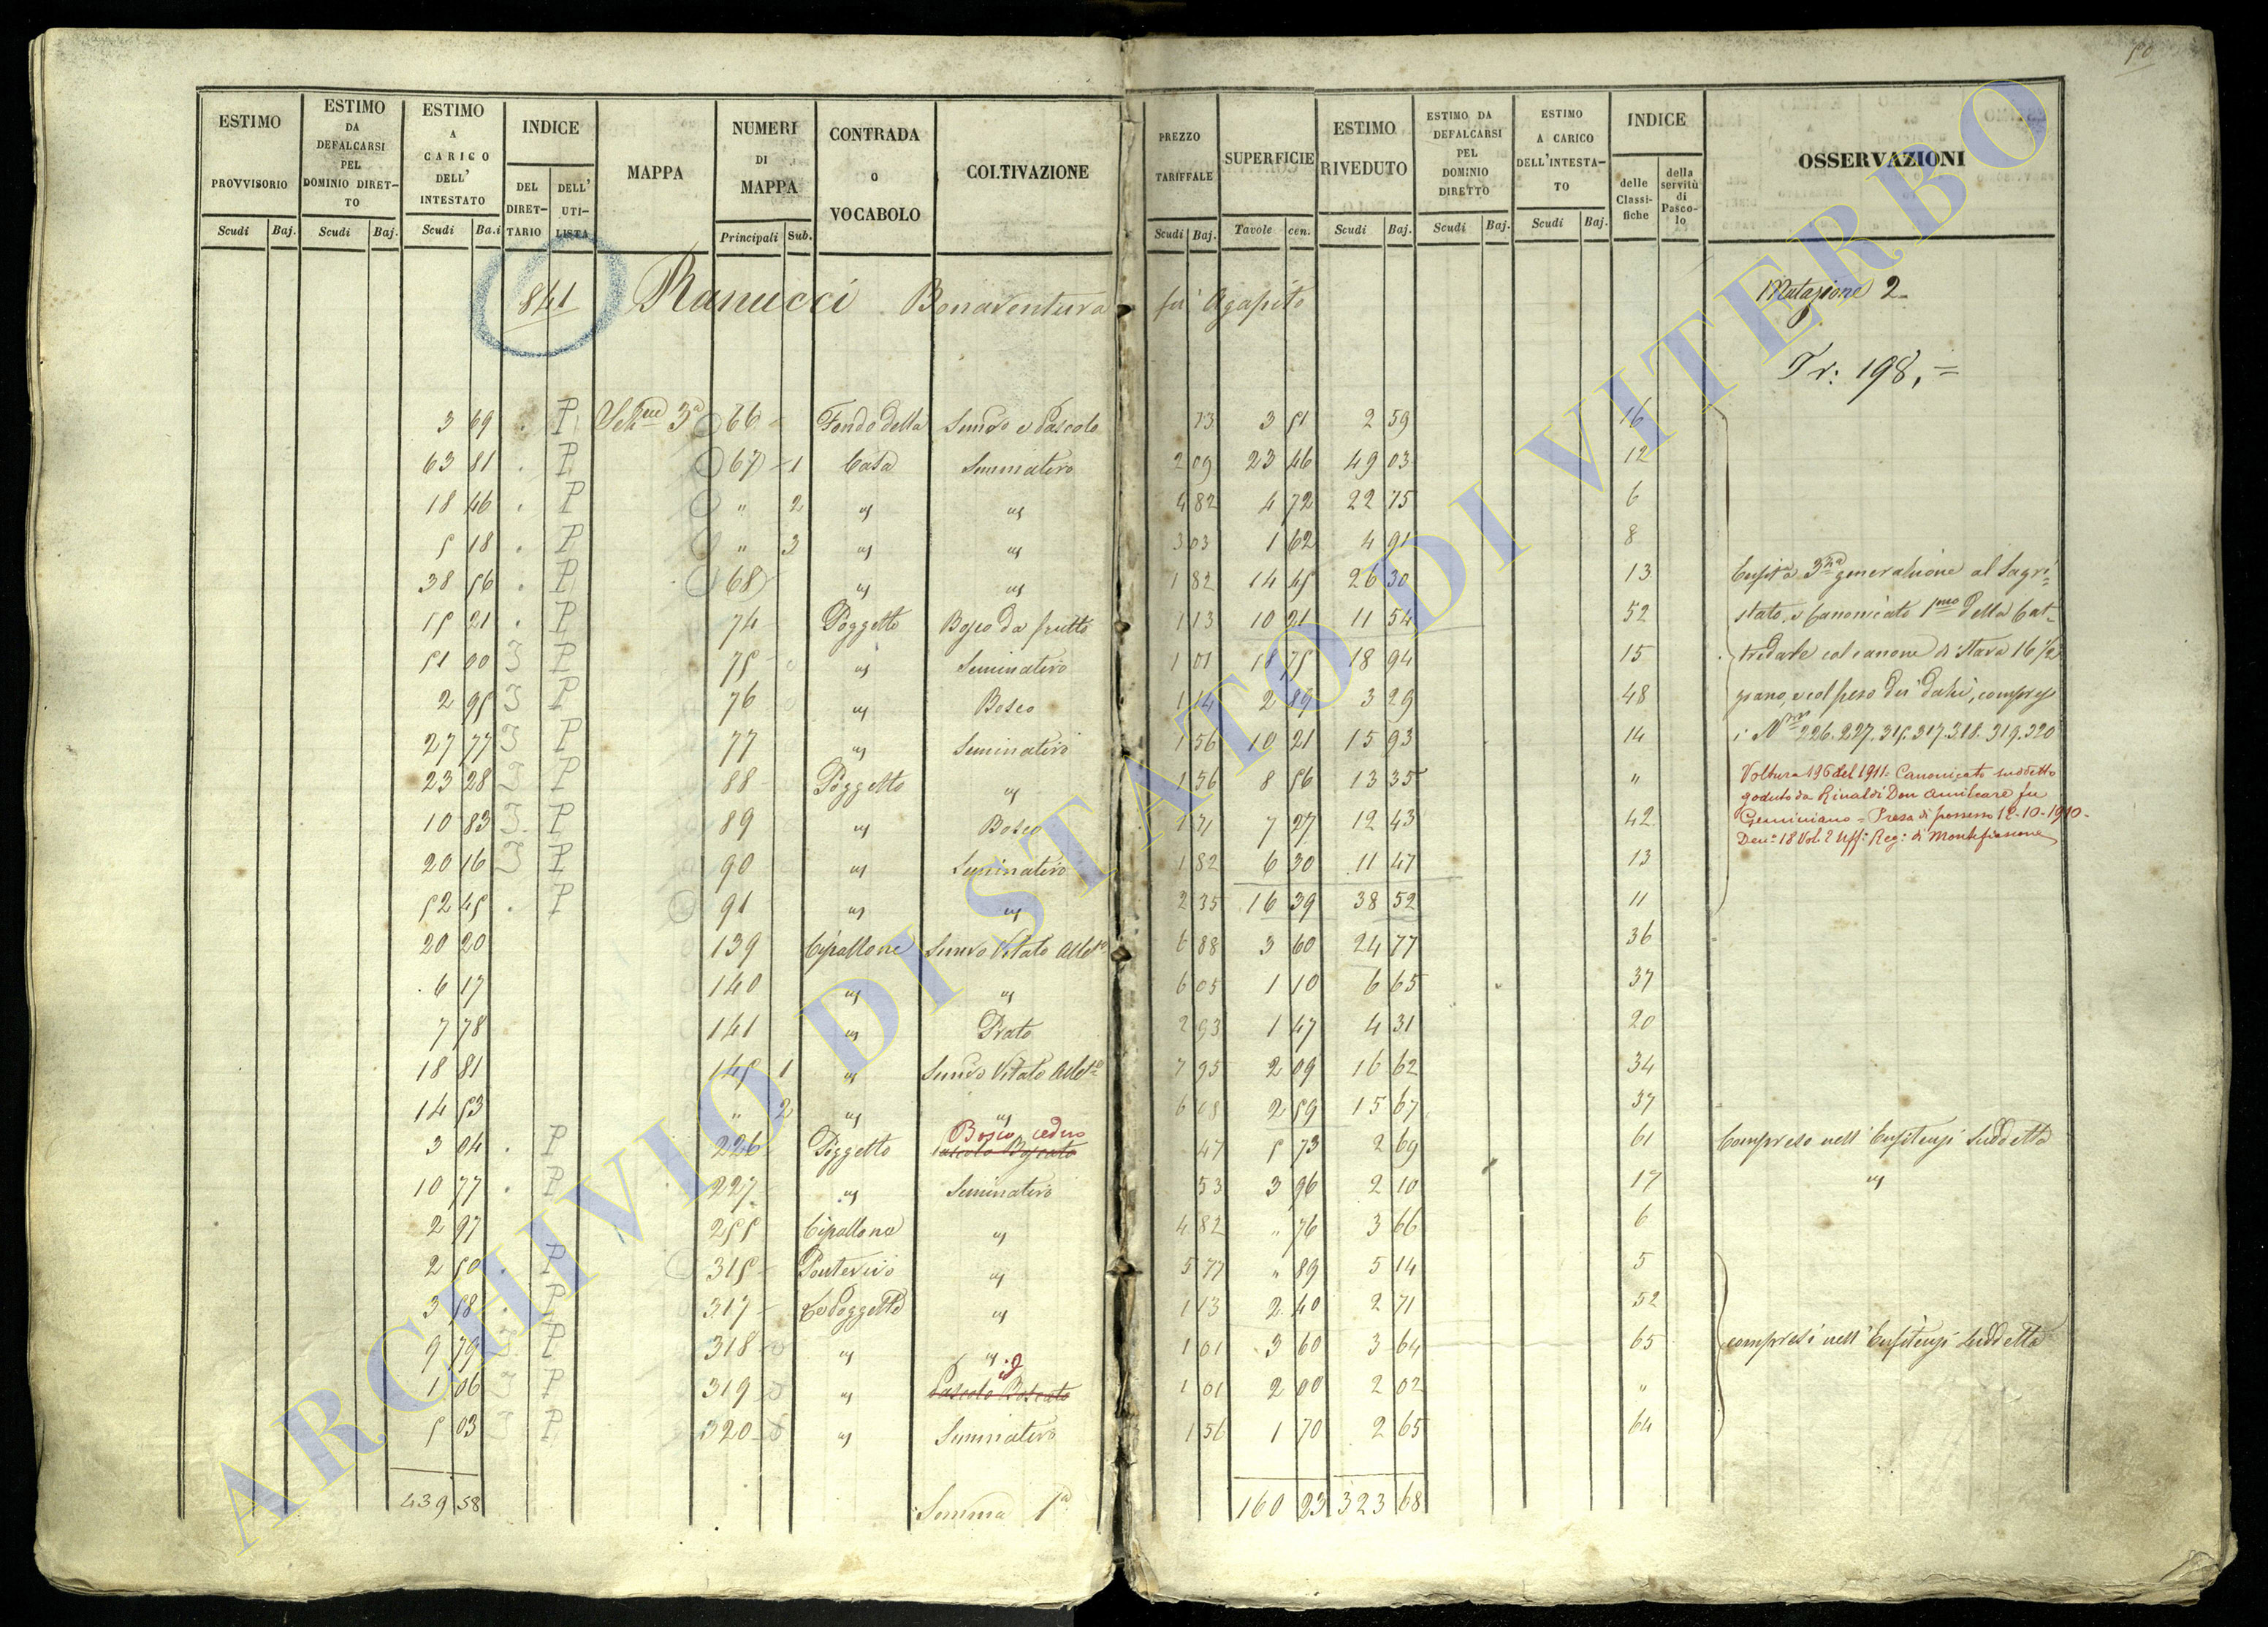 50
ESTIMO PROVVISORIO
ESTIMO DA DEFALCARSI PEL DOMINIO DIRETTO
ESTIMO A CARICO DELL' INTESTATO
INDICE
DEL DIRETTARIO
DELL' UTILISTA
MAPPA
NUMERI DI MAPPA
CONTRADA O VOCABOLO
COLTIVAZIONE
PREZZO TARIFFALE
SUPERFICIE
ESTIMO RIVEDUTO
ESTIMO DA DEFALCARSI PEL DOMINIO DIRETTO
ESTIMO A CARICO DELL'INTESTATO
INDICE
delle Classifiche
della servitù di Pascolo
OSSERVAZIONI
Scudi Baj. Scudi Baj. Scudi Ba.i Principali Sub. Scudi Baj. Tavole cen. Scudi Baj. Scudi Baj. Scudi Baj.
841 Ranucci Bonaventura fu Agapito
Mutazione 2
Tr: 198, =
3 69 . P 3a 66 Fondo della Semvo e Pascolo 73 3 51 2 59 16
63 81 . P 67 1 Casa Seminativo 2 09 23 46 49 03 12
18 46 . P " 2 " " 4 82 4 72 22 75 6
5 18 . P " 3 " " 3 03 1 62 4 91 8
38 56 . P 68 " " 1 82 14 45 26 30 13
15 21 . P 74 Poggetto Bosco da frutto 1 13 10 21 11 54 52
51 00 I P 75 " Seminativo 1 01 18 75 18 94 15
2 95 I P 76 " Bosco 1 14 2 89 3 29 48
27 77 I P 77 " Seminativo 1 56 10 21 15 93 14
23 28 I P 88 Poggetto " 1 56 8 56 13 35 "
10 83 I P 89 " Bosco 1 71 7 27 12 43 42
20 16 I P 90 " Seminativo 1 82 6 30 11 47 13
52 45 . P 91 " " 2 35 16 39 38 52 11
20 20 139 Cipallone Semvo Vitato Alleto 6 88 3 60 24 77 36
6 17 140 " " 6 05 1 10 6 65 37
7 78 141 " Prato 2 93 1 47 4 31 20
18 81 145 1 " Semvo Vitato Alleto 7 95 2 09 16 62 34
14 53 " 2 " " 6 05 2 59 15 67 37
Bosco ceduo
3 04 . P 226 Poggetto Pascolo Boscato 47 5 73 2 69 61 Compreso nell' Enfiteusi suddetta
10 77 . P 227 " Seminativo 53 3 96 2 10 17 "
2 97 255 Cipallone " 4 82 " 76 3 66 6
2 50 . P 315 Pontevivo " 5 77 " 89 5 14 5
3 58 . P 317 Lo Poggetto " 1 13 2 40 2 71 52
9 79 I P 318 " " 1 01 3 60 3 64 65 compresi nell' Enfiteusi suddetta
1 06 I P 319 " Pascolo Boscato 1 01 2 00 2 02 "
5 03 I P 320 " Seminativo 1 56 1 70 2 65 64
439 58 Somma 1a 160 23 323 68
Enfita 3za generazione al Sagri=
stato, e Canonicato 1mo della Cat=
tedrale col canone di Stara 16 1/2
grano, e col peso dei dazi, compresi
i Nri 226. 227. 315. 317. 318. 319. 320
Voltura 196 del 1911 = Canonicato suddetto
goduto da Rinaldi Don Amilcare fu
Geminiano = Presa di possesso 12-10-1910-
Den: 18 Vol: 2 Uff: Reg: di Montefiascone
ARCHIVIO DI STATO DI VITERBO